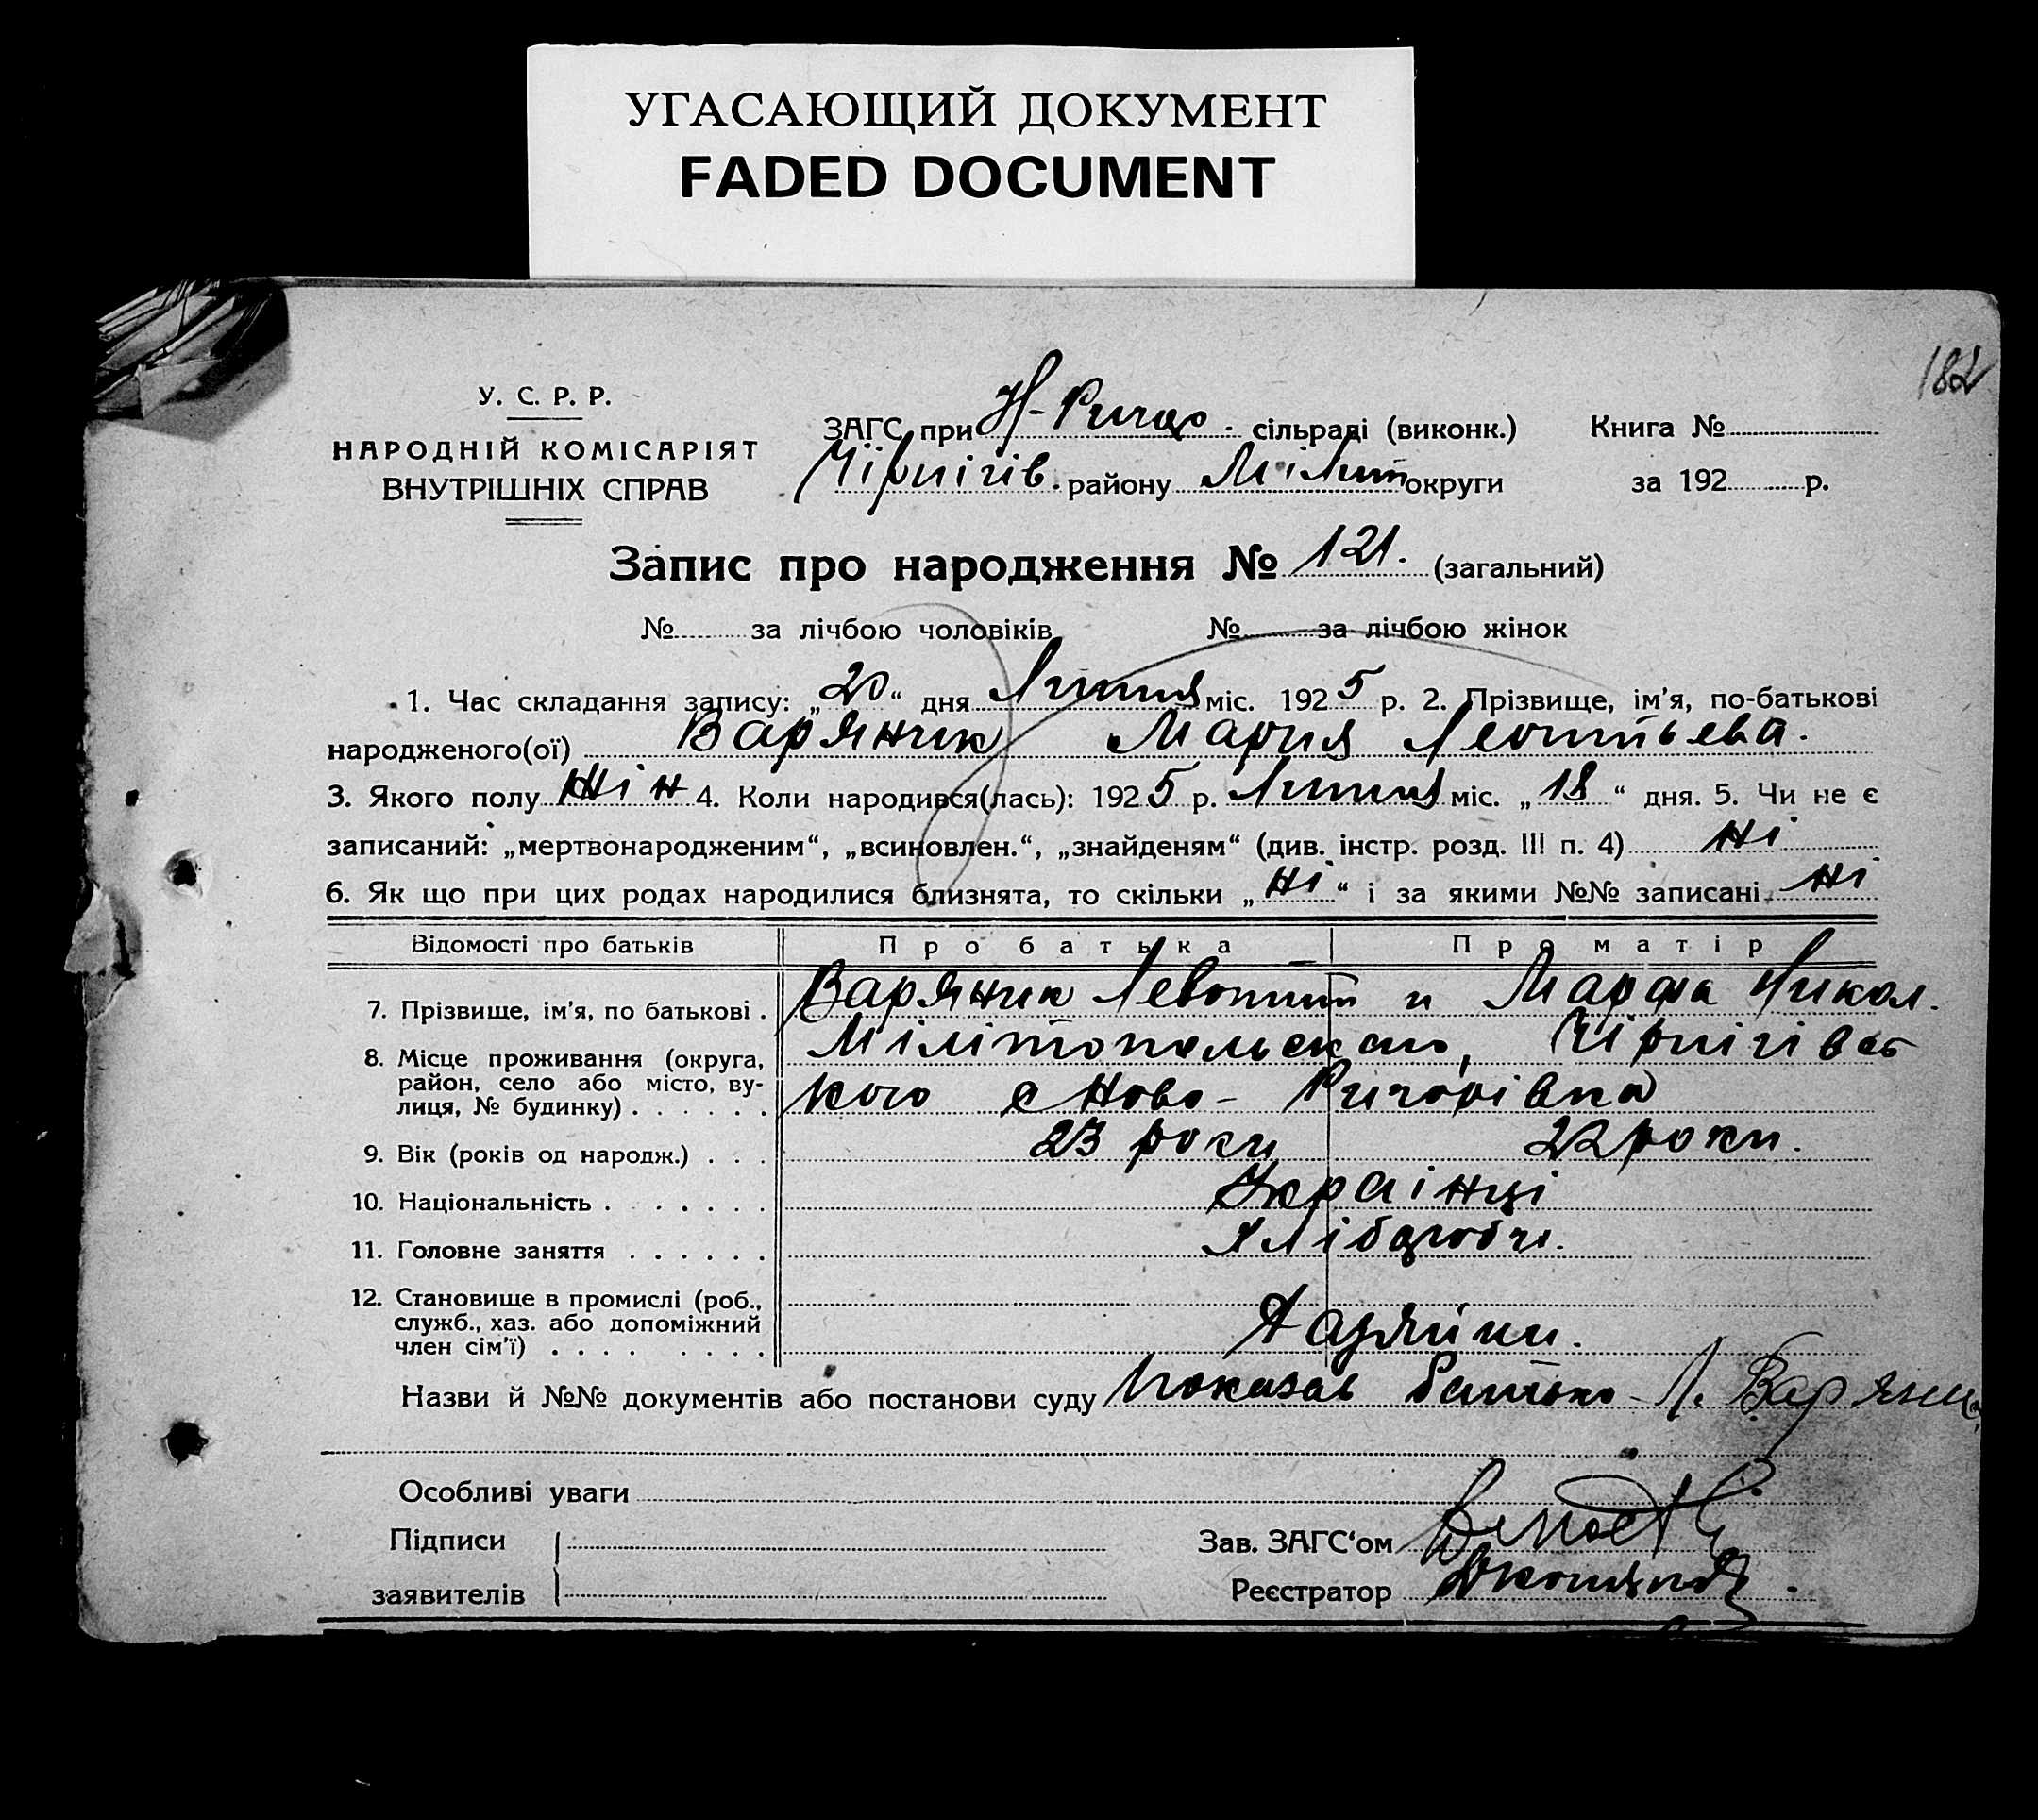 УГАСАЮЩИЙ ДОКУМЕНТ
FADED DOCUMENT
182
У. С. Р. Р.
НАРОДНІЙ КОМІСАРІЯТ
ВНУТРІШНІХ СПРАВ
ЗАГС при Н-Ригор. сільраді (виконк.)
Чірнігів. району Міліт округи
Книга №
за 192 р.
Запис про народження № 121. (загальний)
№ за лічбою чоловіків № за лічбою жінок
1. Час складання запису: „20“ дня Липня міс. 1925 р. 2. Прізвище, ім'я, по-батькові
народженого(ої) Варяник Мария Леонтьева.
3. Якого полу жін 4. Коли народився(лась): 1925 р. Липня міс. „18“ дня. 5. Чи не є
записаний: „мертвонародженим“, „всиновлен.“, „знайденям“ (див. інстр. розд. III п. 4) ні
6. Як що при цих родах народилися близнята, то скільки „ні“ і за якими №№ записані ні
Відомості про батьків Про батька Про матір
7. Прізвище, ім'я, по батькові . Варяник Левонтий и Марфа Никол.
8. Місце проживання (округа, район, село або місто, вулиця, № будинку) . . . . . . Мілітопольского, Чірнігівського с Ново-Ригорівка
9. Вік (років од народж.) . . . 23 роки 22 роки.
10. Національність . . . . . . . Українці
11. Головне заняття . . . . . . Хлібороби.
12. Становище в промислі (роб., служб., хаз. або допоміжний член сім'ї) . . . . . . . . Хазяйки.
Назви й №№ документів або постанови суду Показав батько - Л. Варяник
Особливі уваги
Підписи
заявителів
Зав. ЗАГС'ом
Реєстратор